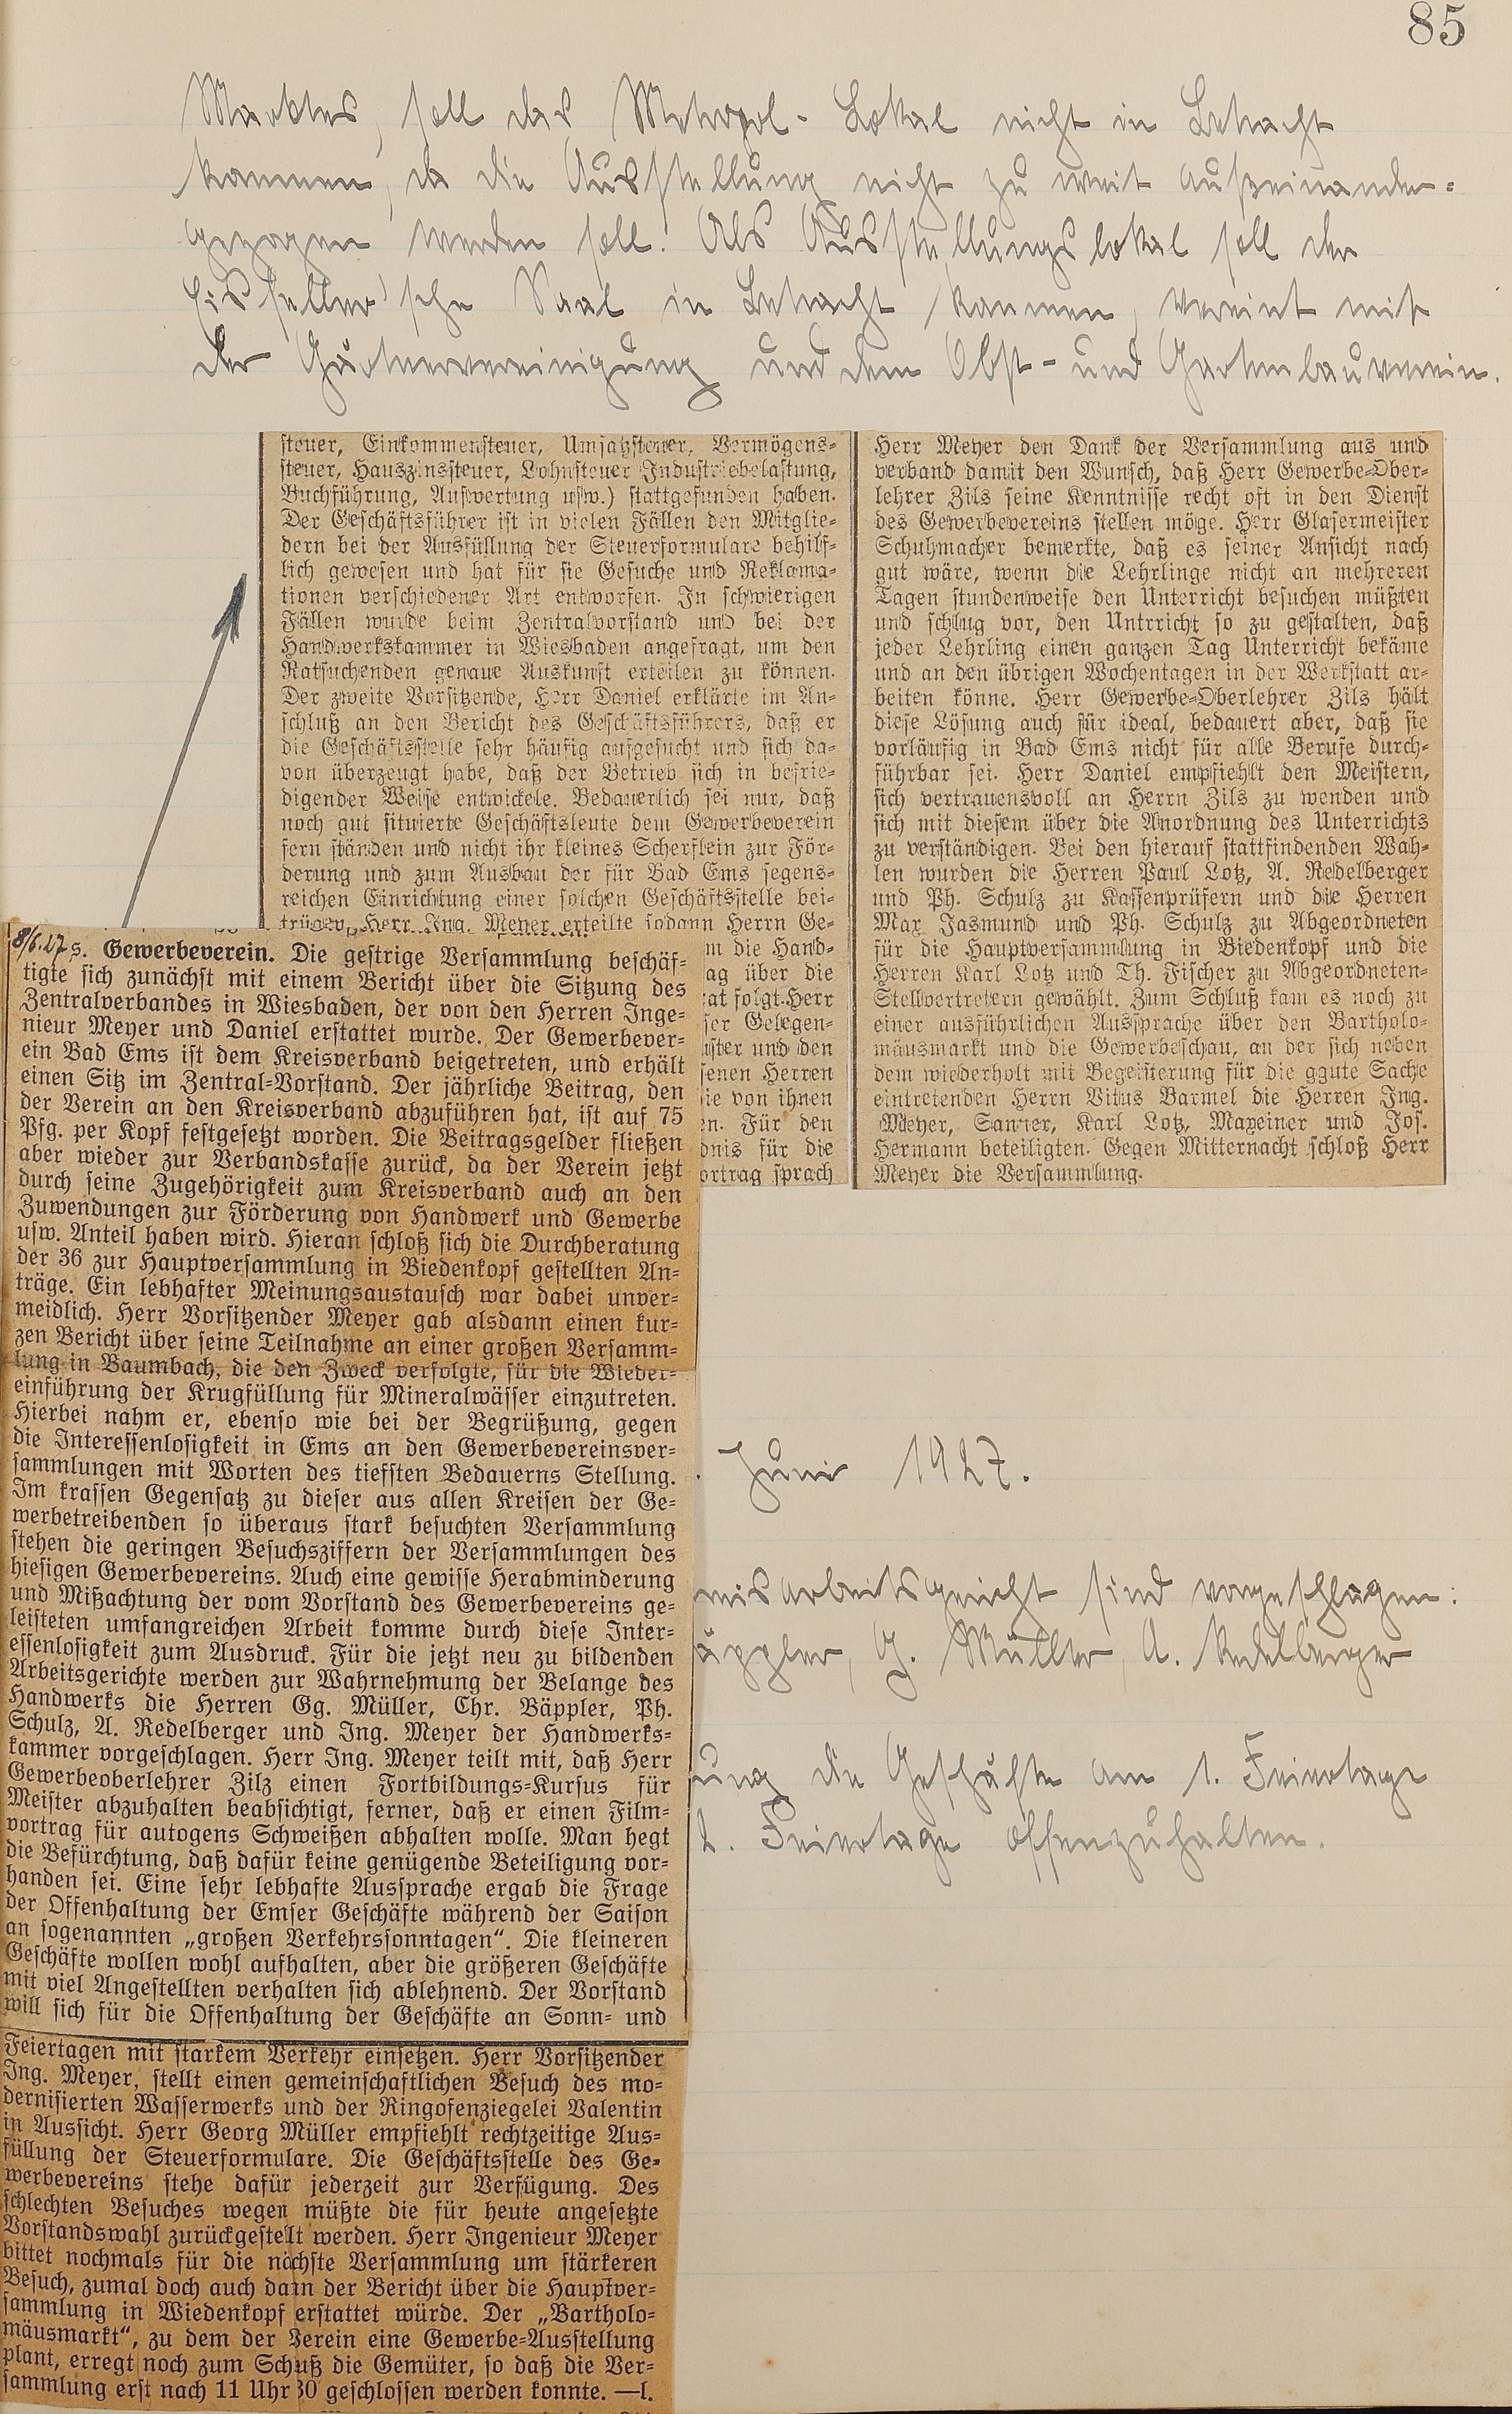 85
Marktes, soll das Metropol-Lokal nicht in Betracht
kommen, da die Ausstellung nicht zu weit außeinander-
gezogen werden soll. Als Ausstellungslokal soll der
sche Saal in Betracht kommen, vereint mit
der Gärtnervereinigung und dem Obst- und Gartenbauverein.
steuer, Einkommensteuer, Umsatzsteuer, Vermögens-
steuer, Hauszinssteuer, Lohnsteuer Industriebelastung,
Buchführung, Aufwertung usw.) stattgefunden haben.
Der Geschäftsführer ist in vielen Fällen den Mitglie-
dern bei der Ausfüllung der Steuerformulare behilf-
lich gewesen und hat für sie Gesuche und Reklama-
tionen verschiedener Art entworfen. In schwierigen
Fällen wurde beim Zentralvorstand und bei der
Handwerkskammer in Wiesbaden angefragt, um den
Ratsuchenden genaue Auskunft erteilen zu können.
Der zweite Vorsitzende, Herr Daniel erklärte im An-
schluß an den Bericht des Geschäftsführers, daß er
die Geschäftsstelle sehr häufig aufgesucht und sich da-
von überzeugt habe, daß der Betrieb sich in befrie-
digender Weise entwickele. Bedauerlich sei nur, daß
noch gut situierte Geschäftsleute dem Gewerbeverein
fern ständen und nicht ihr kleines Scherflein zur För-
derung und zum Ausbau der für Bad Ems segens-
reichen Einrichtung einer solchen Geschäftsstelle bei-
trügen. Herr Ing. Meyer erteilte sodann Herrn Ge-
m die Hand-
ag über die
at folgt. Herr
ser Gelegen-
ster und den
senen Herren
sie von ihnen
n. Für den
dnis für die
ortrag sprach
Herr Meyer den Dank der Versammlung aus und
verband damit den Wunsch, daß Herr Gewerbe-Ober-
lehrer Zils seine Kenntnisse recht oft in den Dienst
des Gewerbevereins stellen möge. Herr Glasermeister
Schuhmacher bemerkte, daß es seiner Ansicht nach
gut wäre, wenn die Lehrlinge nicht an mehreren
Tagen stundenweise den Unterricht besuchen müßten
und schlug vor, den Untrricht so zu gestalten, daß
jeder Lehrling einen ganzen Tag Unterricht bekäme
und an den übrigen Wochentagen in der Werkstatt ar-
beiten könne. Herr Gewerbe-Oberlehrer Zils hält
diese Lösung auch für ideal, bedauert aber, daß sie
vorläufig in Bad Ems nicht für alle Berufe durch-
führbar sei. Herr Daniel empfiehlt den Meistern,
sich vertrauensvoll an Herrn Zils zu wenden und
sich mit diesem über die Anordnung des Unterrichts
zu verständigen. Bei den hierauf stattfindenden Wah-
len wurden die Herren Paul Lotz, A. Redelberger
und Ph. Schulz zu Kassenprüfern und die Herren
Max Jasmund und Ph. Schulz zu Abgeordneten
für die Hauptversammlung in Biedenkopf und die
Herren Karl Lotz und Th. Fischer zu Abgeordneten-
Stellvertretern gewählt. Zum Schluß kam es noch zu
einer ausführlichen Aussprache über den Bartholo-
mäusmarkt und die Gewerbeschau, an der sich neben
dem wiederholt mit Begeisterung für die ggute Sache
eintretenden Herrn Vitus Barmel die Herren Ing.
Meyer, Sanner, Karl Lotz, Maxeiner und Jos.
Hermann beteiligten. Gegen Mitternacht schloß Herr
Meyer die Versammlung.
8/6.27 s. Gewerbeverein. Die gestrige Versammlung beschäf-
tigte sich zunächst mit einem Bericht über die Sitzung des
Zentralverbandes in Wiesbaden, der von den Herren Inge-
nieur Meyer und Daniel erstattet wurde. Der Gewerbever-
ein Bad Ems ist dem Kreisverband beigetreten, und erhält
einen Sitz im Zentral-Vorstand. Der jährliche Beitrag, den
der Verein an den Kreisverband abzuführen hat, ist auf 75
Pfg. per Kopf festgesetzt worden. Die Beitragsgelder fließen
aber wieder zur Verbandskasse zurück, da der Verein jetzt
durch seine Zugehörigkeit zum Kreisverband auch an den
Zuwendungen zur Förderung von Handwerk und Gewerbe
usw. Anteil haben wird. Hieran schloß sich die Durchberatung
der 36 zur Hauptversammlung in Biedenkopf gestellten An-
träge. Ein lebhafter Meinungsaustausch war dabei unver-
meidlich. Herr Vorsitzender Meyer gab alsdann einen kur-
zen Bericht über seine Teilnahme an einer großen Versamm-
lung in Baumbach, die den Zweck verfolgte, für die Wieder-
einführung der Krugfüllung für Mineralwässer einzutreten.
Hierbei nahm er, ebenso wie bei der Begrüßung, gegen
die Interessenlosigkeit in Ems an den Gewerbevereinsver-
sammlungen mit Worten des tiefsten Bedauerns Stellung.
Im krassen Gegensatz zu dieser aus allen Kreisen der Ge-
werbetreibenden so überaus stark besuchten Versammlung
stehen die geringen Besuchsziffern der Versammlungen des
hiesigen Gewerbevereins. Auch eine gewisse Herabminderung
und Mißachtung der vom Vorstand des Gewerbevereins ge-
leisteten umfangreichen Arbeit komme durch diese Inter-
essenlosigkeit zum Ausdruck. Für die jetzt neu zu bildenden
Arbeitsgerichte werden zur Wahrnehmung der Belange des
Handwerks die Herren Gg. Müller, Chr. Bäppler, Ph.
Schulz, A. Redelberger und Ing. Meyer der Handwerks-
kammer vorgeschlagen. Herr Ing. Meyer teilt mit, daß Herr
Gewerbeoberlehrer Zilz einen Fortbildungs-Kursus für
Meister abzuhalten beabsichtigt, ferner, daß er einen Film-
vortrag für autogens Schweißen abhalten wolle. Man hegt
die Befürchtung, daß dafür keine genügende Beteiligung vor-
handen sei. Eine sehr lebhafte Aussprache ergab die Frage
der Offenhaltung der Emser Geschäfte während der Saison
an sogenannten „großen Verkehrssonntagen“. Die kleineren
Geschäfte wollen wohl aufhalten, aber die größeren Geschäfte
mit viel Angestellten verhalten sich ablehnend. Der Vorstand
will sich für die Offenhaltung der Geschäfte an Sonn- und
Feiertagen mit starkem Verkehr einsetzen. Herr Vorsitzender
Ing. Meyer, stellt einen gemeinschaftlichen Besuch des mo-
dernisierten Wasserwerks und der Ringofenziegelei Valentin
in Aussicht. Herr Georg Müller empfiehlt rechtzeitige Aus-
füllung der Steuerformulare. Die Geschäftsstelle des Ge-
werbevereins stehe dafür jederzeit zur Verfügung. Des
schlechten Besuches wegen müßte die für heute angesetzte
Vorstandswahl zurückgestellt werden. Herr Ingenieur Meyer
bittet nochmals für die nächste Versammlung um stärkeren
Besuch, zumal doch auch dann der Bericht über die Hauptver-
sammlung in Wiedenkopf erstattet würde. Der „Bartholo-
mäusmarkt“, zu dem der Verein eine Gewerbe-Ausstellung
plant, erregt noch zum Schuß die Gemüter, so daß die Ver-
sammlung erst nach 11 Uhr 30 geschlossen werden konnte. —l.
. Juni 1927.
eisarbeitsgericht sind vorgeschlagen:
äppler, G. Müller, A. Redelberger
ung die Geschäfte am 1. Feiertage
2. Feiertage offenzuhalten.